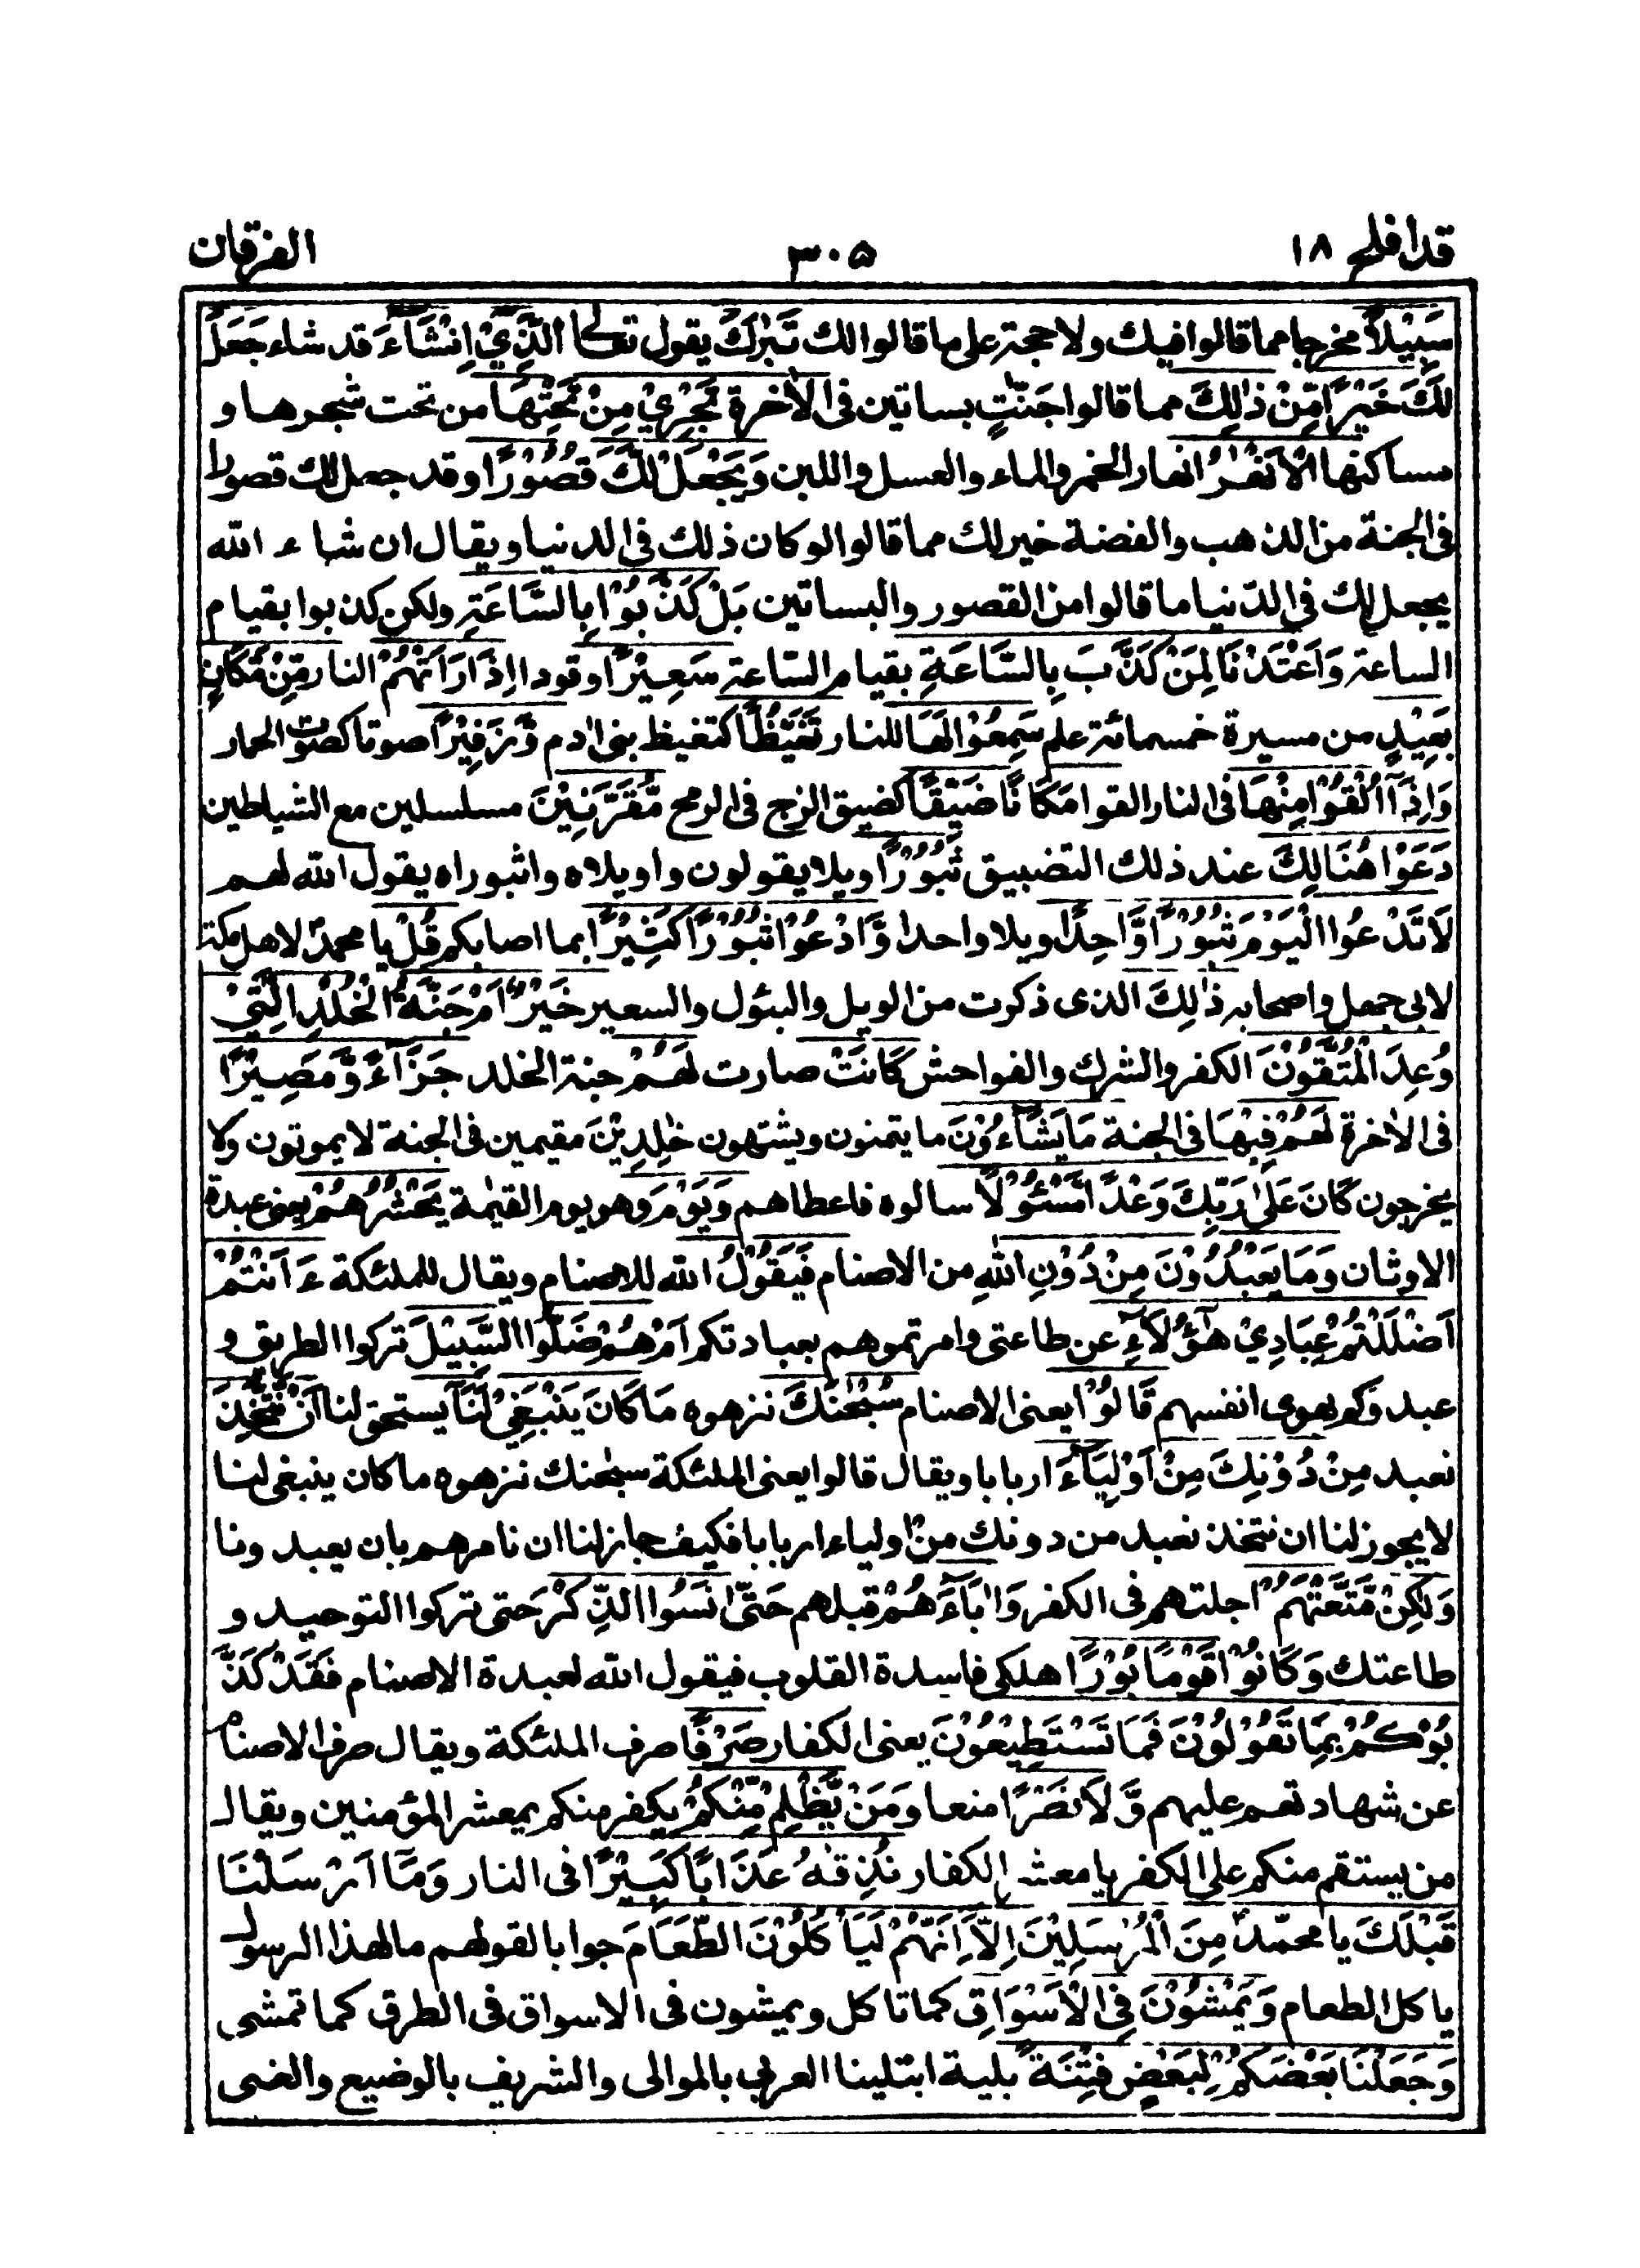 قد افلح ١٨
٣٠٥
الفرقان
سَبِيْلًا مخرجا مما قالوا فيك ولا حجة على ما قالوا لك تَبٰرَكَ يقول تعالى الَّذِيْٓ اِنْ شَآءَ قد شاء جَعَلَ
لَكَ خَيْرًا مِّنْ ذٰلِكَ مما قالوا جَنّٰتٍ بساتين فى الاٰخرة تَجْرِيْ مِنْ تَحْتِهَا من تحت شجرها و
مساكنها الْاَنْهٰرُ انهار الخمر والماء والعسل واللبن وَيَجْعَلْ لَّكَ قُصُوْرًا وقد جعل لك قصورا
فى الجنة من الذهب والفضة خير لك مما قالوا لو كان ذلك فى الدنيا ويقال ان شاء الله
يجعل لك فى الدّنيا ما قالوا من القصور والبساتين بَلْ كَذَّبُوْا بِالسَّاعَةِ ولكن كذبوا بقيام
الساعة وَاَعْتَدْنَا لِمَنْ كَذَّبَ بِالسَّاعَةِ بقيام السّاعة سَعِيْرًا وقودا اِذَا رَاَتْهُمْ النار مِّنْ مَّكَانٍ
بَعِيْدٍ من مسيرة خمسمائة علم سَمِعُوْا لَهَا للنار تَغَيُّظًا كتغيظ بنى اٰدم وَّزَفِيْرًا صوتا كصوت الحمار
وَاِذَآ اُلْقُوْا مِنْهَا فى النار القوا مَكَانًا ضَيِّقًا كضيق الزج فى الرمح مُّقَرَّنِيْنَ مسلسلين مع الشياطين
دَعَوْا هُنَالِكَ عند ذلك التضييق ثُبُوْرًا ويلا يقولون واويلاه واثبوراه يقول الله لهم
لَا تَدْعُوا الْيَوْمَ ثُبُوْرًا وَّاحِدًا ويلا واحدا وَّادْعُوْا ثُبُوْرًا كَثِيْرًا بما اصابكم قُلْ يا محمدؐ لاهل مكة
لابى جهل واصحابه ذٰلِكَ الذى ذكرت من الويل والبثول والسعير خَيْرٌ اَمْ جَنَّةُ الْخُلْدِ الَّتِيْ
وُعِدَ الْمُتَّقُوْنَ الكفر والشرك والفواحش كَانَتْ صارت لَهُمْ جنة الخلد جَزَآءً وَّمَصِيْرًا
فى الاٰخرة لَهُمْ فِيْهَا فى الجنة مَا يَشَآءُوْنَ ما يتمنون ويشتهون خٰلِدِيْنَ مقيمين فى الجنة لا يموتون ولا
يخرجون كَانَ عَلٰى رَبِّكَ وَعْدًا مَّسْئُوْلًا سالوه فاعطاهم وَيَوْمَ وهو يوم القيٰمة يَحْشُرُهُمْ يعنى عبدة
الاوثان وَمَا يَعْبُدُوْنَ مِنْ دُوْنِ اللّٰهِ من الاصنام فَيَقُوْلُ الله للاصنام ويقال للملئكة ءَاَنْتُمْ
اَضْلَلْتُمْ عِبَادِيْ هٰٓؤُلَآءِ عن طاعتى وامرتموهم بعبادتكم اَمْ هُمْ ضَلُّوا السَّبِيْلَ تركوا الطريق و
عبدوكم بهوى انفسهم قَالُوْا يعنى الاصنام سُبْحٰنَكَ نزهوه مَا كَانَ يَنْبَغِيْ لَنَآ يستحق لنا اَنْ نَّتَّخِذَ
نعبد مِنْ دُوْنِكَ مِنْ اَوْلِيَآءَ اربابا ويقال قالوا يعنى الملئكة سبحٰنك نزهوه ما كان ينبغى لنا
لا يجوز لنا ان نتخذ نعبد من دونك من اولياء اربابا فكيف جاز لنا ان نامرهم بان يعبدونا
وَلٰكِنْ مَّتَّعْتَهُمْ اجلتهم فى الكفر وَاٰبَآءَهُمْ قبلهم حَتّٰى نَسُوا الذِّكْرَ حتى تركوا التوحيد و
طاعتك وَكَانُوْا قَوْمًا بُوْرًا هلكى فاسدة القلوب فيقول الله لعبدة الاصنام فَقَدْ كَذَّ
بُوْكُمْ بِمَا تَقُوْلُوْنَ فَمَا تَسْتَطِيْعُوْنَ يعنى الكفار صَرْفًا صرف الملئكة ويقال صرف الاصنام
عن شهادتهم عليهم وَّلَا نَصْرًا منعا وَمَنْ يَّظْلِمْ مِّنْكُمْ يكفر منكم يمعشر المؤمنين ويقال
من يستقم منكم على الكفر يا معشر الكفار نُذِقْهُ عَذَابًا كَبِيْرًا فى النار وَمَآ اَرْسَلْنَا
قَبْلَكَ يا محمّدؐ مِنَ الْمُرْسَلِيْنَ اِلَّآ اِنَّهُمْ لَيَاْكُلُوْنَ الطَّعَامَ جوابا لقولهم مالهذا الرسول
ياكل الطعام وَيَمْشُوْنَ فِى الْاَسْوَاقِ كما تاكل ويمشون فى الاسواق فى الطرق كما تمشى
وَجَعَلْنَا بَعْضَكُمْ لِبَعْضٍ فِتْنَةً بلية ابتلينا العربى بالموالى والشريف بالوضيع والغنى